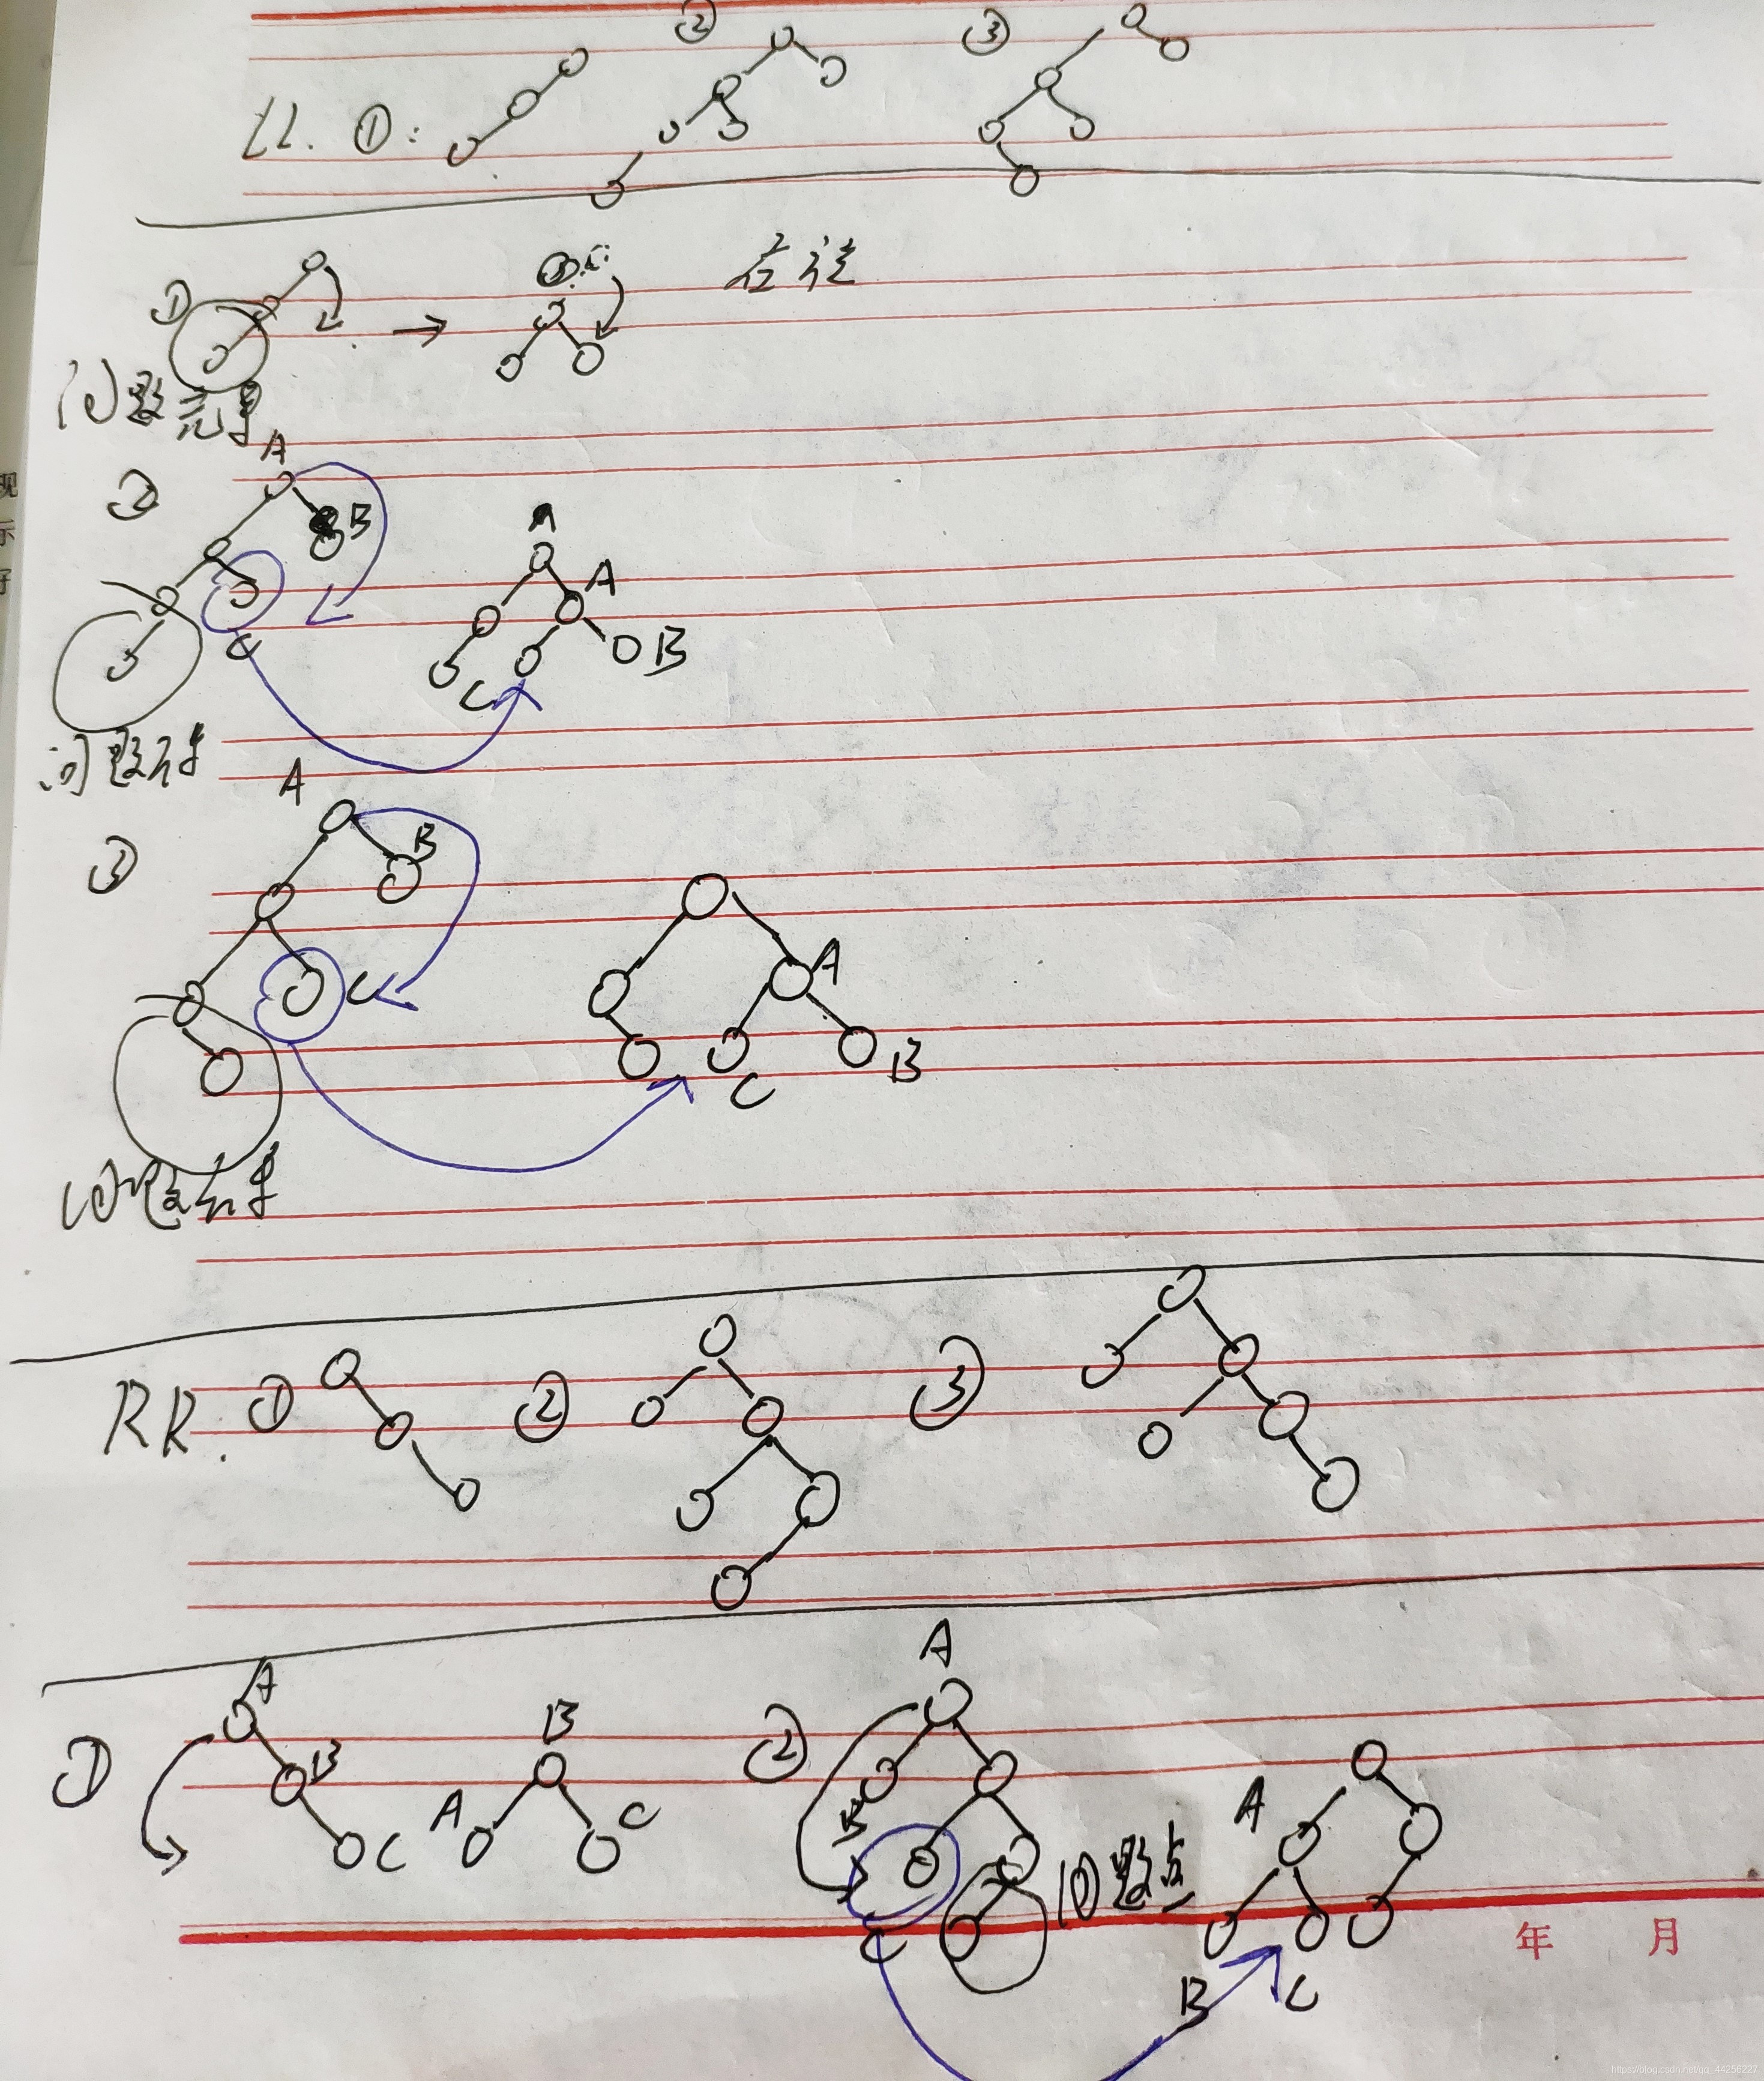 ② ③
LL. ①:
① 右旋
问题元素
A
② B
A
A
C
B
C
问题结点
A
③ B
A
C
B
C
问题结点
RR: ① ② ③
A
A B B ②
① B
A C
C A
B 问题点
C
B C
年 月
现
示
好
https://blog.csdn.net/qq_44256227